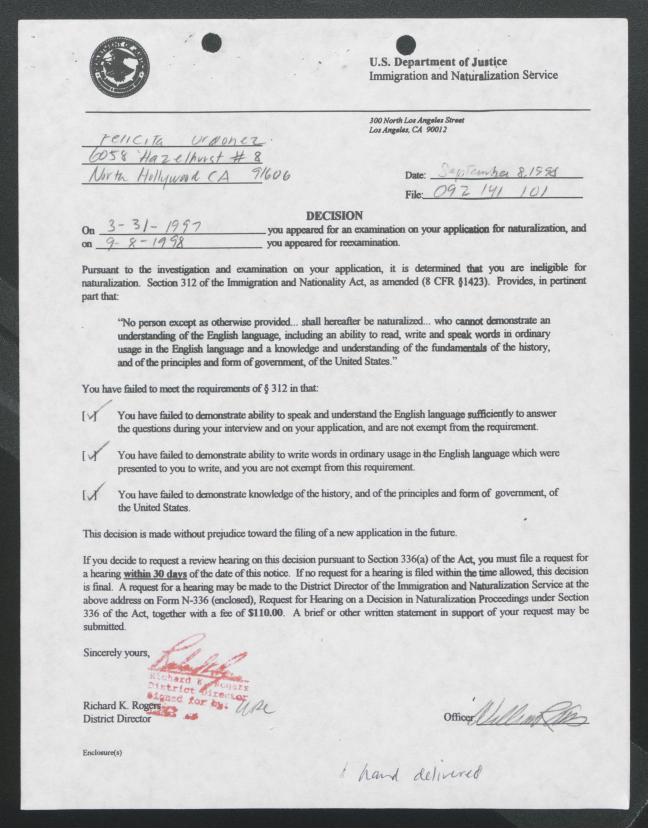 U.S. Department of Justice
Immigration and Naturalization Service
300 North Los Angeles Street
Los Angeles, CA 90012
Felicita Urdonez
6058 Hazelhurst # 8
North Hollywood CA 91606
Date: September 8, 1998
File: 092 141 101
DECISION
On 3-31-1997 you appeared for an examination on your application for naturalization, and
on 9-8-1998 you appeared for reexamination.
Pursuant to the investigation and examination on your application, it is determined that you are ineligible for
naturalization. Section 312 of the Immigration and Nationality Act, as amended (8 CFR §1423). Provides, in pertinent
part that:
"No person except as otherwise provided... shall hereafter be naturalized... who cannot demonstrate an
understanding of the English language, including an ability to read, write and speak words in ordinary
usage in the English language and a knowledge and understanding of the fundamentals of the history,
and of the principles and form of government, of the United States."
You have failed to meet the requirements of § 312 in that:
[✓] You have failed to demonstrate ability to speak and understand the English language sufficiently to answer
the questions during your interview and on your application, and are not exempt from the requirement.
[✓] You have failed to demonstrate ability to write words in ordinary usage in the English language which were
presented to you to write, and you are not exempt from this requirement.
[✓] You have failed to demonstrate knowledge of the history, and of the principles and form of government, of
the United States.
This decision is made without prejudice toward the filing of a new application in the future.
If you decide to request a review hearing on this decision pursuant to Section 336(a) of the Act, you must file a request for
a hearing within 30 days of the date of this notice. If no request for a hearing is filed within the time allowed, this decision
is final. A request for a hearing may be made to the District Director of the Immigration and Naturalization Service at the
above address on Form N-336 (enclosed), Request for Hearing on a Decision in Naturalization Proceedings under Section
336 of the Act, together with a fee of $110.00. A brief or other written statement in support of your request may be
submitted.
Sincerely yours,
Richard K. Rogers
District Director
Signed for by:
Richard K. Rogers
District Director
Officer
Enclosure(s)
hand delivered